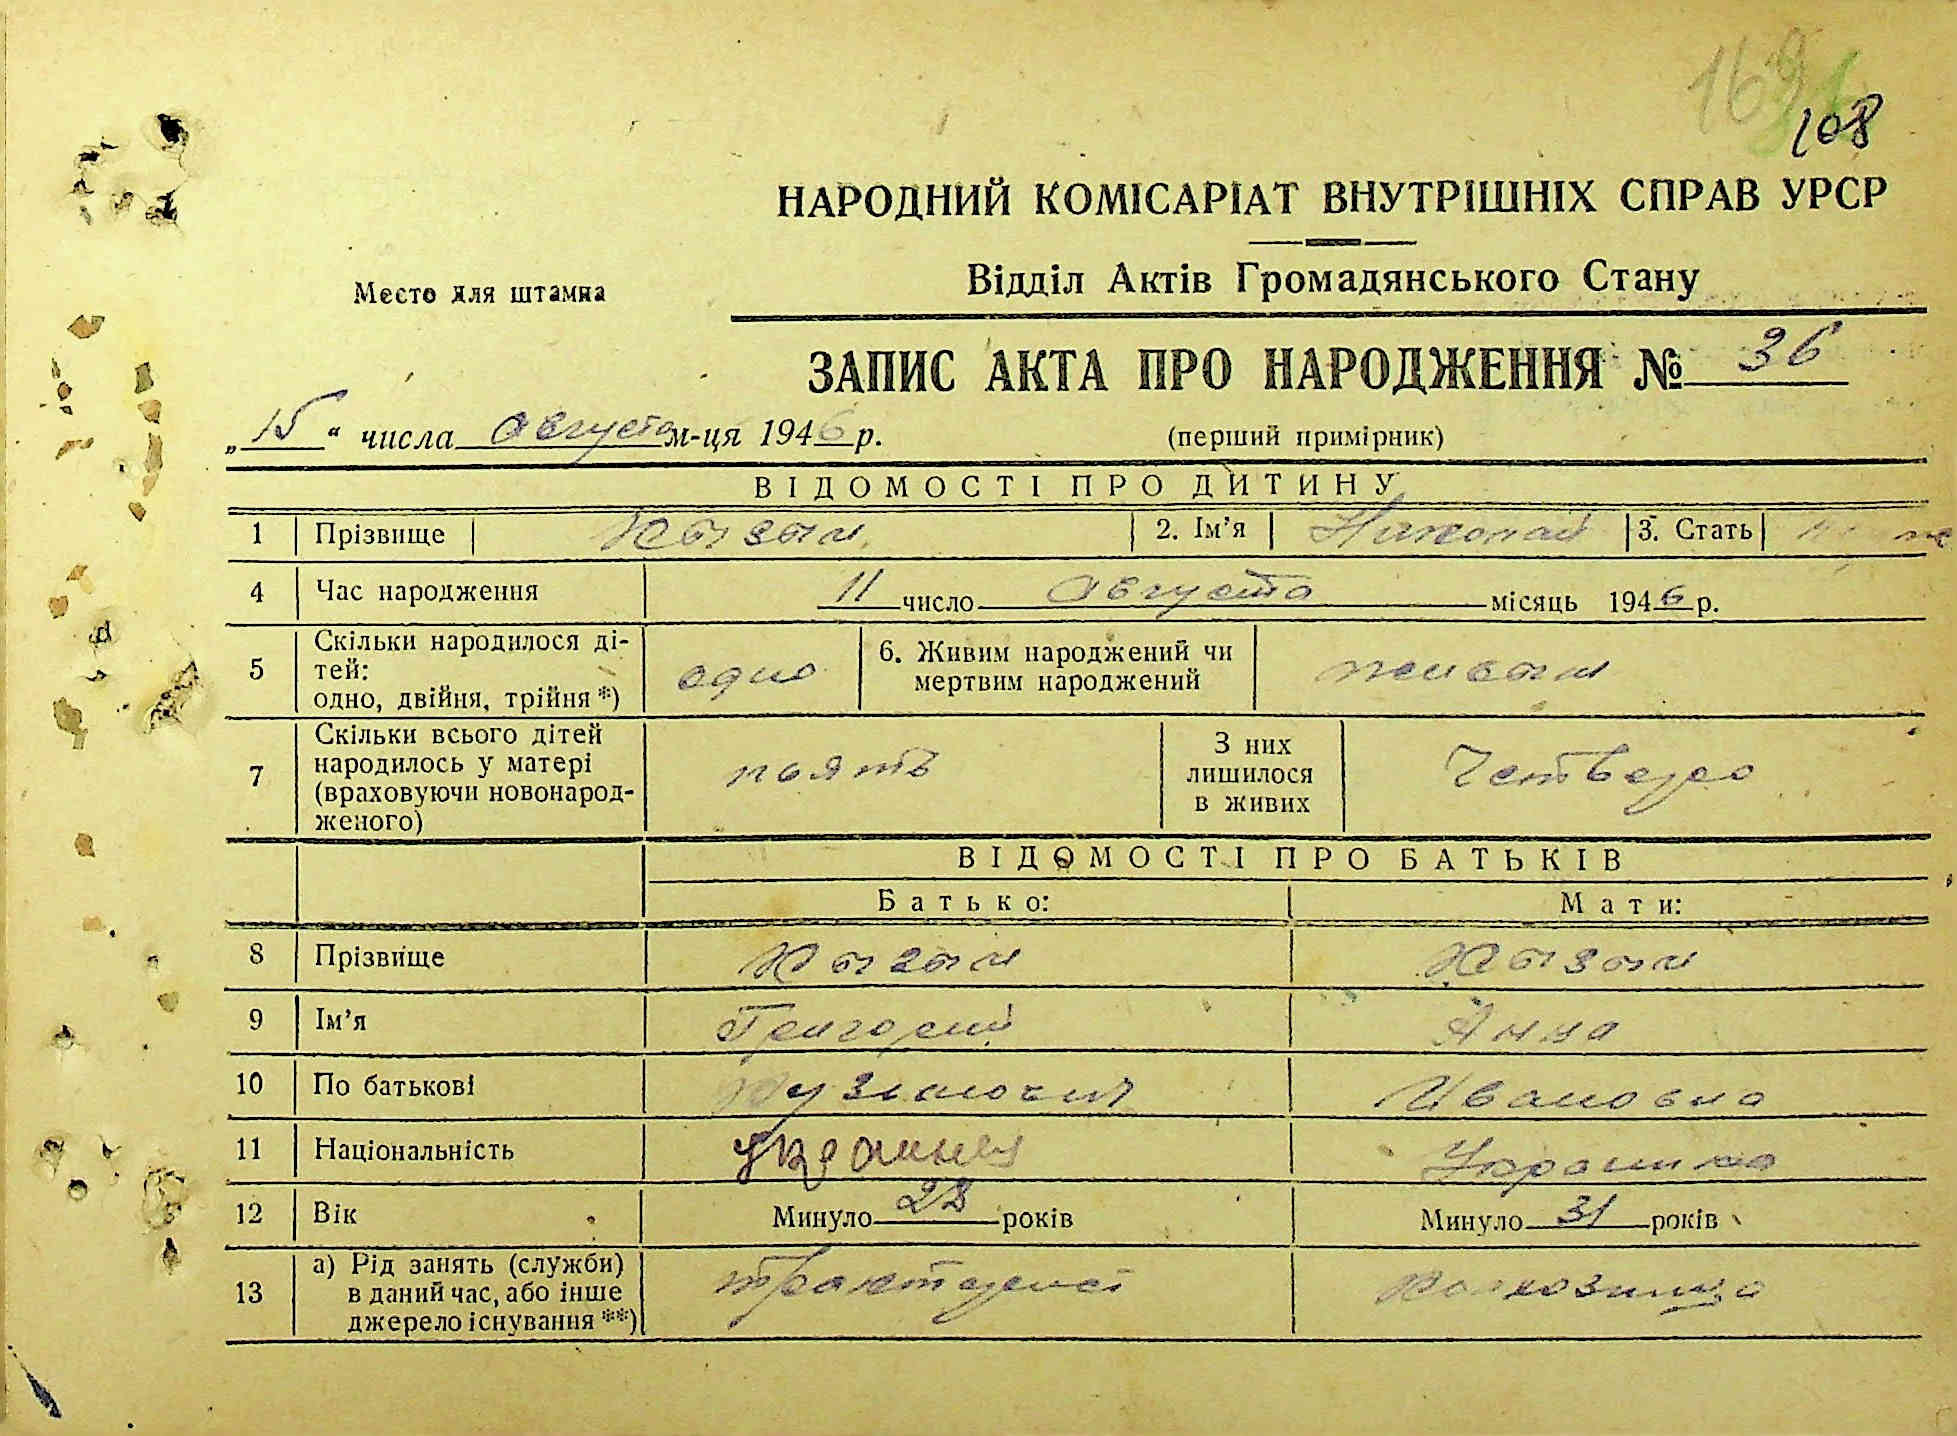 108
НАРОДНИЙ КОМІСАРІАТ ВНУТРІШНІХ СПРАВ УРСР
Место для штампа
Відділ Актів Громадянського Стану
ЗАПИС АКТА ПРО НАРОДЖЕННЯ № 36
„15“ числа Августа м-ця 1946 р. (перший примірник)
ВІДОМОСТІ ПРО ДИТИНУ
1 Прізвище Кызым 2. Ім'я Николай 3. Стать
4 Час народження 11 число Августа місяць 1946 р.
5 Скільки народилося ді-
тей:
одно, двійня, трійня *) одно 6. Живим народжений чи
мертвим народжений живым
7 Скільки всього дітей
народилось у матері
(враховуючи новонарод-
женого) пьять З них
лишилося
в живих Четверо
ВІДОМОСТІ ПРО БАТЬКІВ
Батько: Мати:
8 Прізвище Кызым Кызым
9 Ім'я Григорий Анна
10 По батькові Кузьмович Ивановна
11 Національність Украинец Украинка
12 Вік Минуло 28 років Минуло 31 років
13 а) Рід занять (служби)
в даний час, або інше
джерело існування **) тракторист Колхозница